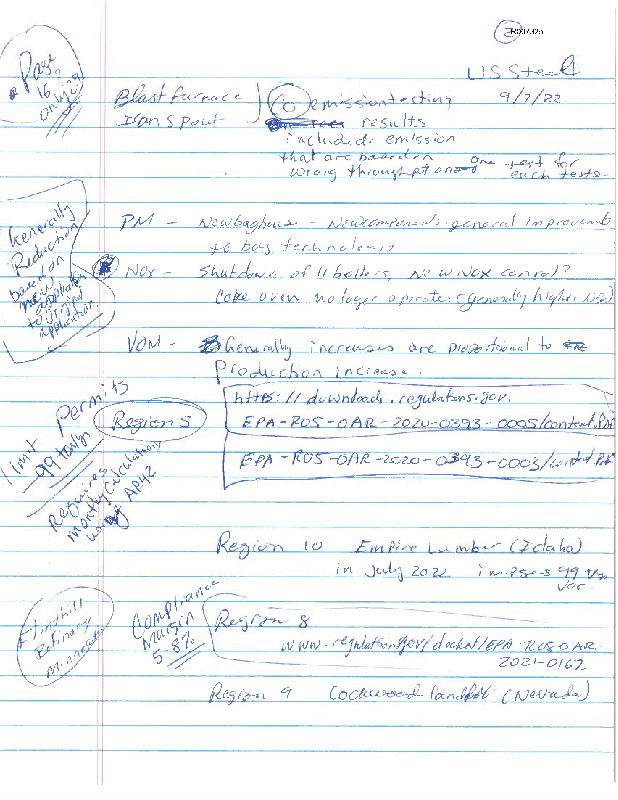 R007325
US Steel
9/7/22
* Page 16 only 23
Blast furnace
Iron Spout
CO emission testing
results
include emission
that are based on
wrong throughput and one test for
each tests.
Generally
Reduction
based on
new
application
to original
application
PM - New baghouse - New components general improvements
to bag technology
NOx - Shutdown of 11 boilers, New NOx control?
Coke oven no longer operates (generally higher NOx)
VOM - Generally increases are proportional to
Production increase.
https://downloads.regulations.gov.
EPA-R05-OAR-2020-0393-0005/content.pdf
EPA-R05-OAR-2020-0393-0003/content.pdf
Region 5
Limit permits
99 ton/yr
Requires
monthly calculations
using AP42
Region 10 Empire Lumber (Idaho)
in July 2022 imposes 99
Flint hill
Refinary
Minnesota
Compliance
Margin
5-8%
Region 8
www.regulation.gov/docket/EPA-R08-OAR
2021-0167
Region 9 Lockwood landfill (Nevada)